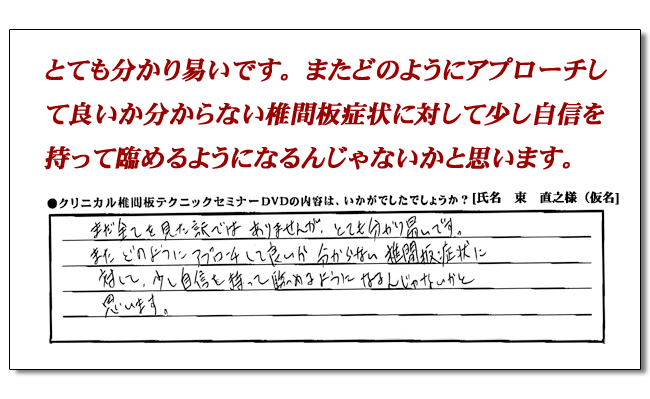 とても分かり易いです。またどのようにアプローチし
て良いか分からない椎間板症状に対して少し自信を
持って臨めるようになるんじゃないかと思います。
●クリニカル椎間板テクニックセミナーDVDの内容は、いかがでしたでしょうか？[氏名 東 直之様（仮名]
まだ全てを見た訳ではありませんが、とても分かり易いです。
また どのように アプローチして良いか 分からない 椎間板症状に
対して、少し自信を持って臨めるように なるんじゃないかと
思います。